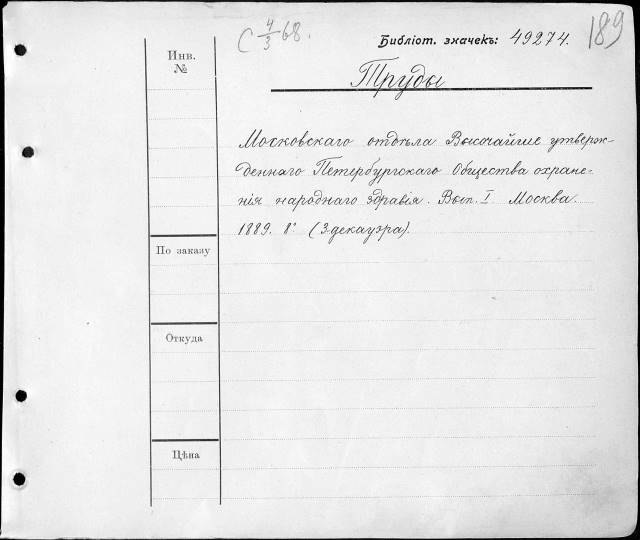 С 4/3 68.
Библіот. значекъ: 49274.
189
Инв.
№
Труды
Московскаго отдѣла Высочайше утверж-
деннаго Петербургскаго Общества охране-
нія народнаго здравія. Вып. I. Москва.
1889. 8°. (3-
По заказу
Откуда
Цѣна